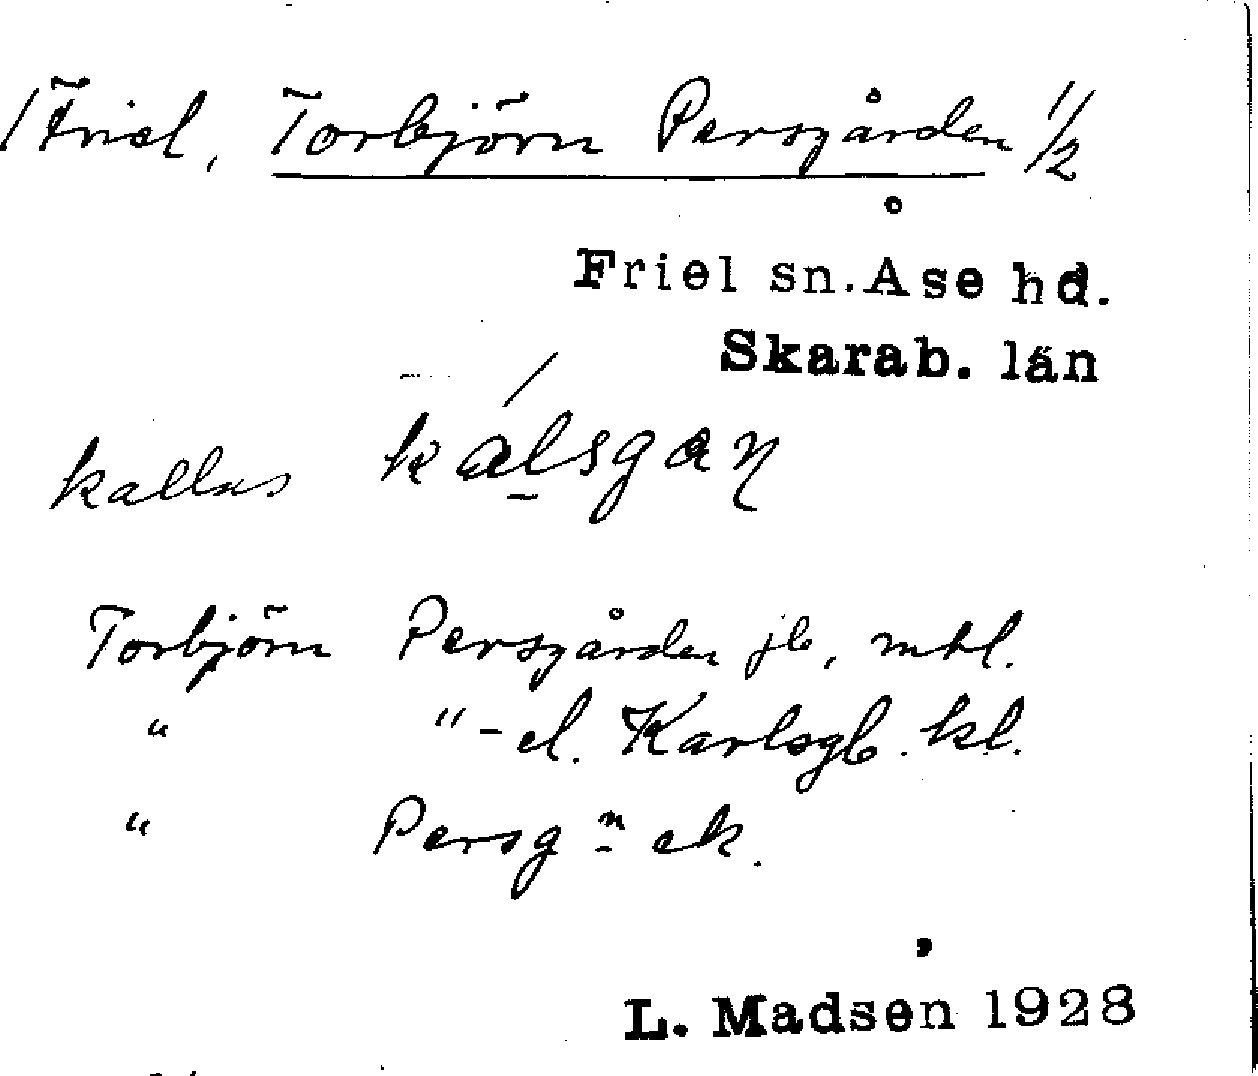 1 Friel, Torbjörn Persgården 1/2
Friel sn. Åse hd.
Skarab. län
kallas kálsgaŋ
Torbjörn Persgården jb, mtl.
" " - el. Karlsgb. kl.
" Persg n ek.
L. Madsén 1928